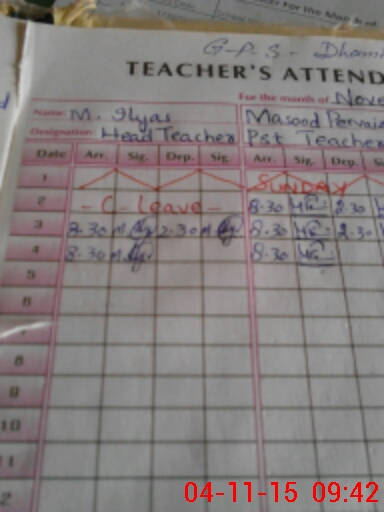 G.P.S - Dhami
TEACHER'S ATTEND
For the month of Nove
Name: M. Ilyas Masood Pervai
Designation: Head Teacher Pst Teacher
Date Arr. Sig. Dep. Sig. Arr. Sig. Dep. S
1 SUNDAY
2 - C - Leave - 8.30 2.30
3 8.30 2.30 8.30 2.30
4 8.30 8.30
5
6
7
8
9
10
11
2
04-11-15 09:42